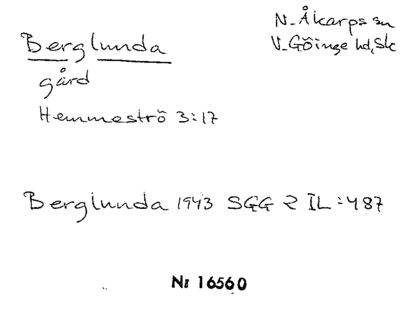 N. Åkarps sn
Berglunda
V. Göinge hd, Sk
gård
Hemmeströ 3:17
Berglunda 1943 SGG 2 IL:487
Nr 16560